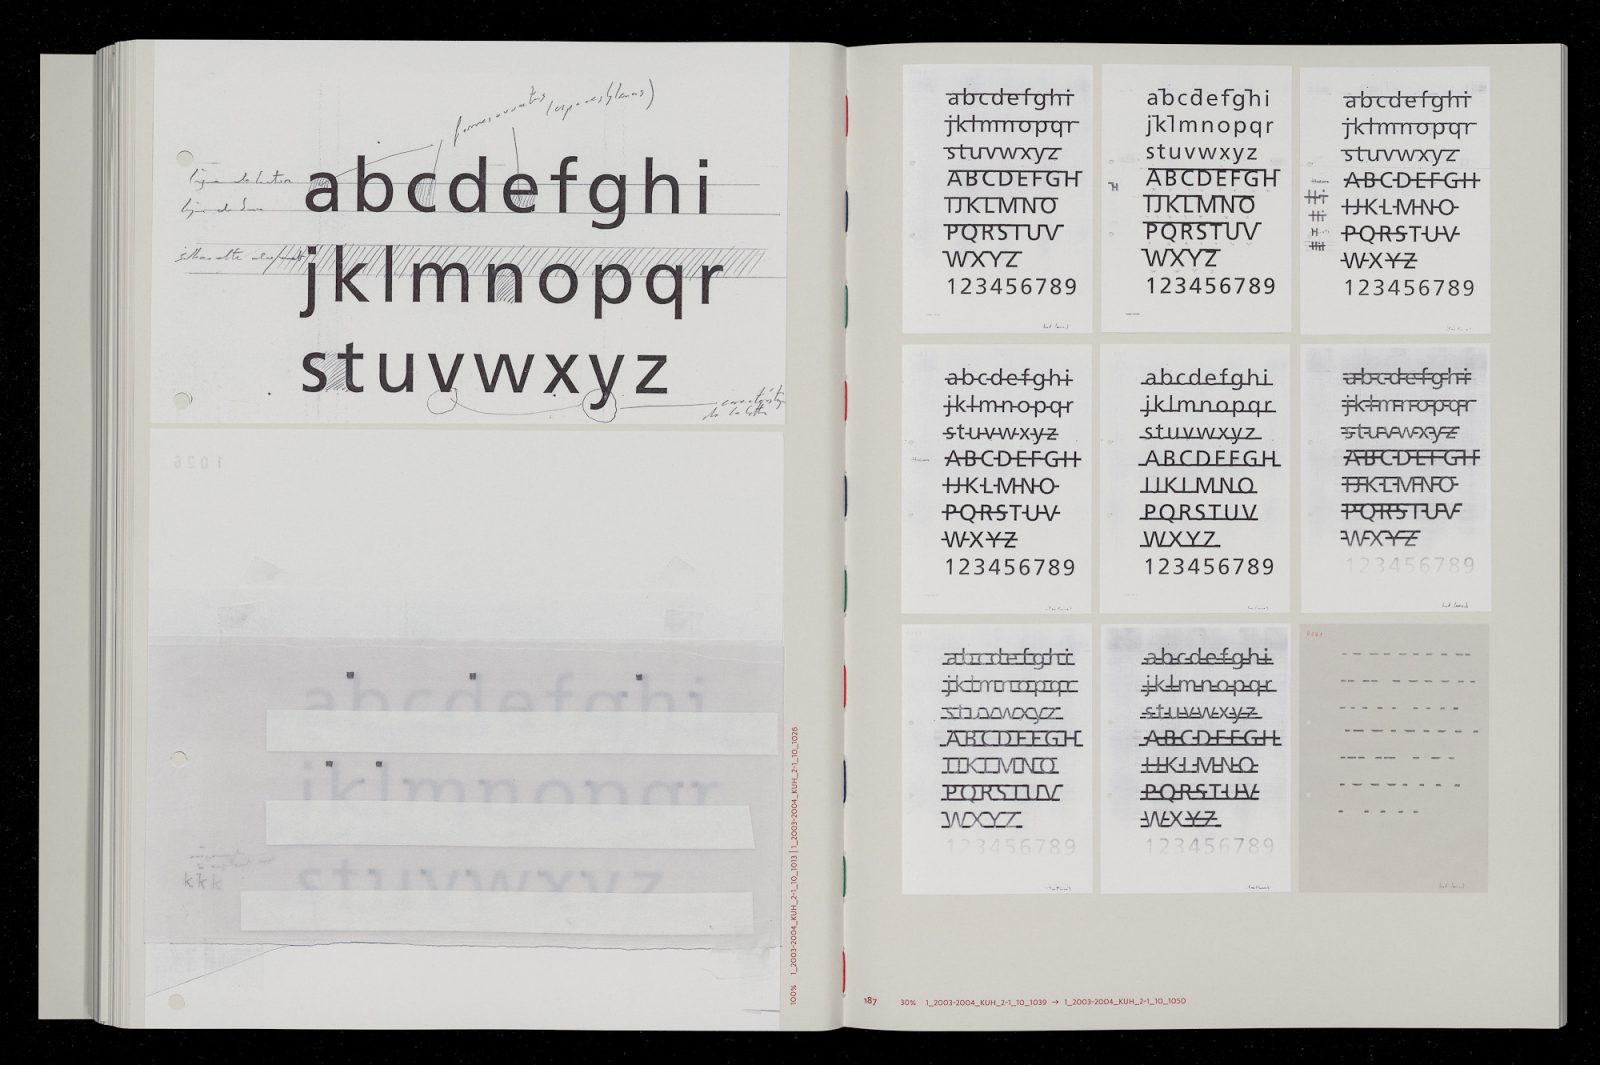 formes ouvertes (espaces blancs)
ligne de
abcdefghi
ligne de base
jklmnopqr
silhouette
stuvwxyz
de la lettre
1026
abcdefghi
jklmnopqr
stuvwxyz
kkk
100% 1_2003-2004_KUH_2-1_10_1013 | 1_2003-2004_KUH_2-1_10_1026
abcdefghi
jklmnopqr
stuvwxyz
ABCDEFGH
IJKLMNO
PQRSTUV
WXYZ
123456789
abcdefghi
jklmnopqr
stuvwxyz
ABCDEFGH
IJKLMNO
PQRSTUV
WXYZ
123456789
abcdefghi
jklmnopqr
stuvwxyz
ABCDEFGH
IJKLMNO
PQRSTUV
WXYZ
123456789
abcdefghi
jklmnopqr
stuvwxyz
ABCDEFGH
IJKLMNO
PQRSTUV
WXYZ
123456789
abcdefghi
jklmnopqr
stuvwxyz
ABCDEFGH
IJKLMNO
PQRSTUV
WXYZ
123456789
abcdefghi
jklmnopqr
stuvwxyz
ABCDEFGH
IJKLMNO
PQRSTUV
WXYZ
123456789
abcdefghi
jklmnopqr
stuvwxyz
ABCDEFGH
IJKLMNO
PQRSTUV
WXYZ
123456789
abcdefghi
jklmnopqr
stuvwxyz
ABCDEFGH
IJKLMNO
PQRSTUV
WXYZ
123456789
187 30% 1_2003-2004_KUH_2-1_10_1039 → 1_2003-2004_KUH_2-1_10_1050